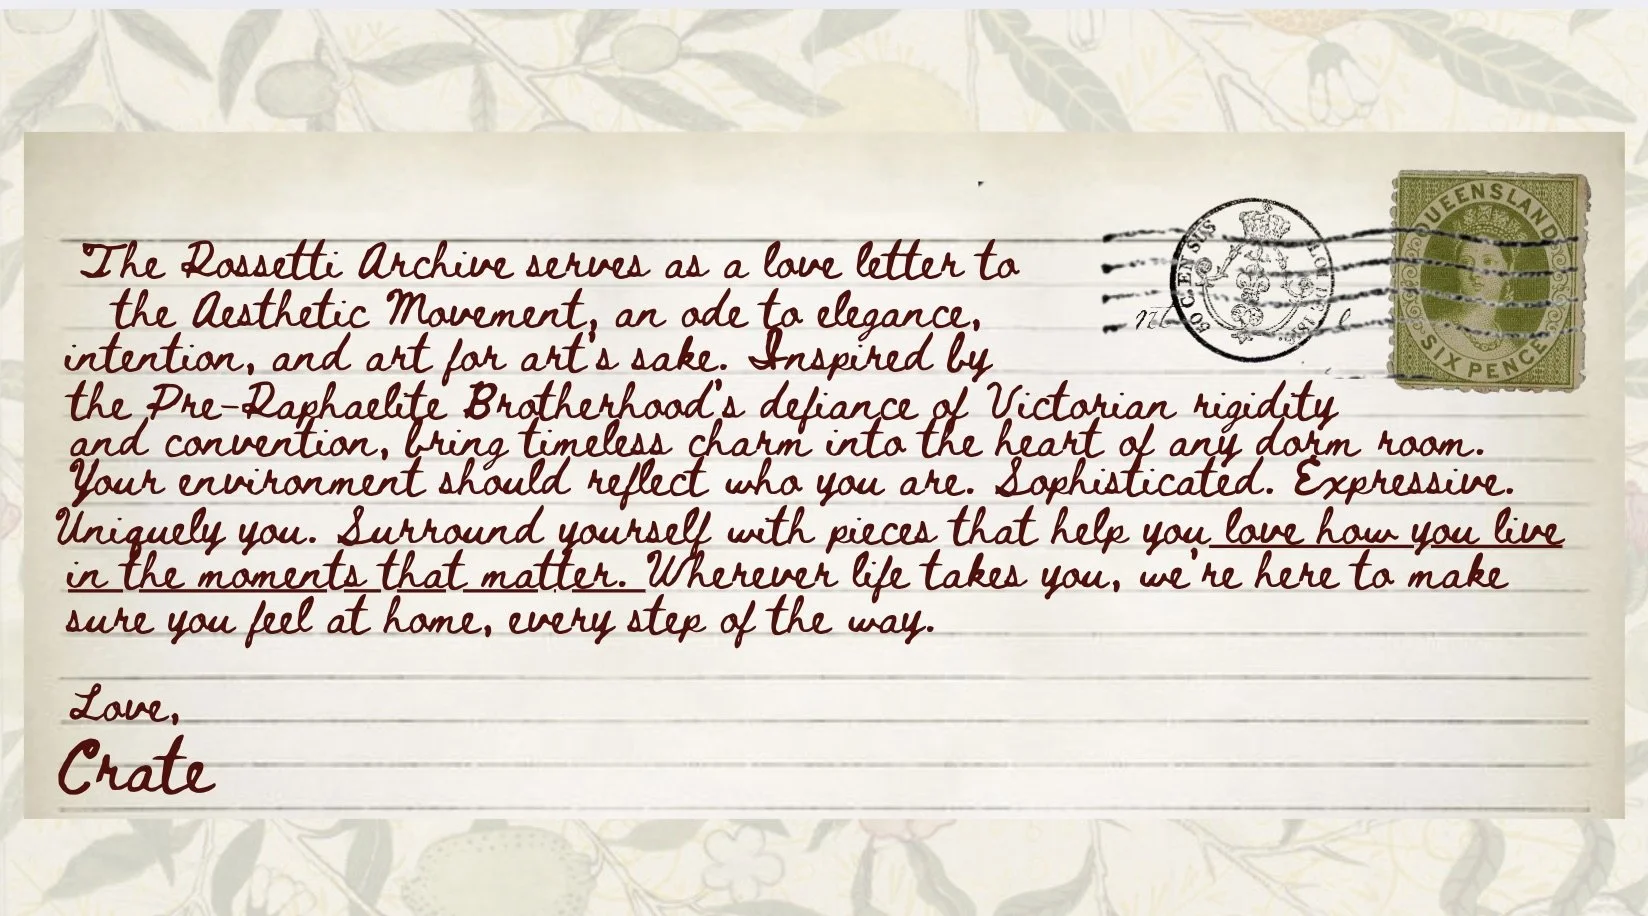 The Rossetti Archive serves as a love letter to
the Aesthetic Movement, an ode to elegance,
intention, and art for art's sake. Inspired by
the Pre-Raphaelite Brotherhood's defiance of Victorian rigidity
and convention, bring timeless charm into the heart of any dorm room.
Your environment should reflect who you are. Sophisticated. Expressive.
Uniquely you. Surround yourself with pieces that help you love how you live
in the moments that matter. Wherever life takes you, we're here to make
sure you feel at home, every step of the way.
Love,
Crate
QUEENSLAND
SIX PENCE
50 C. EN SUS